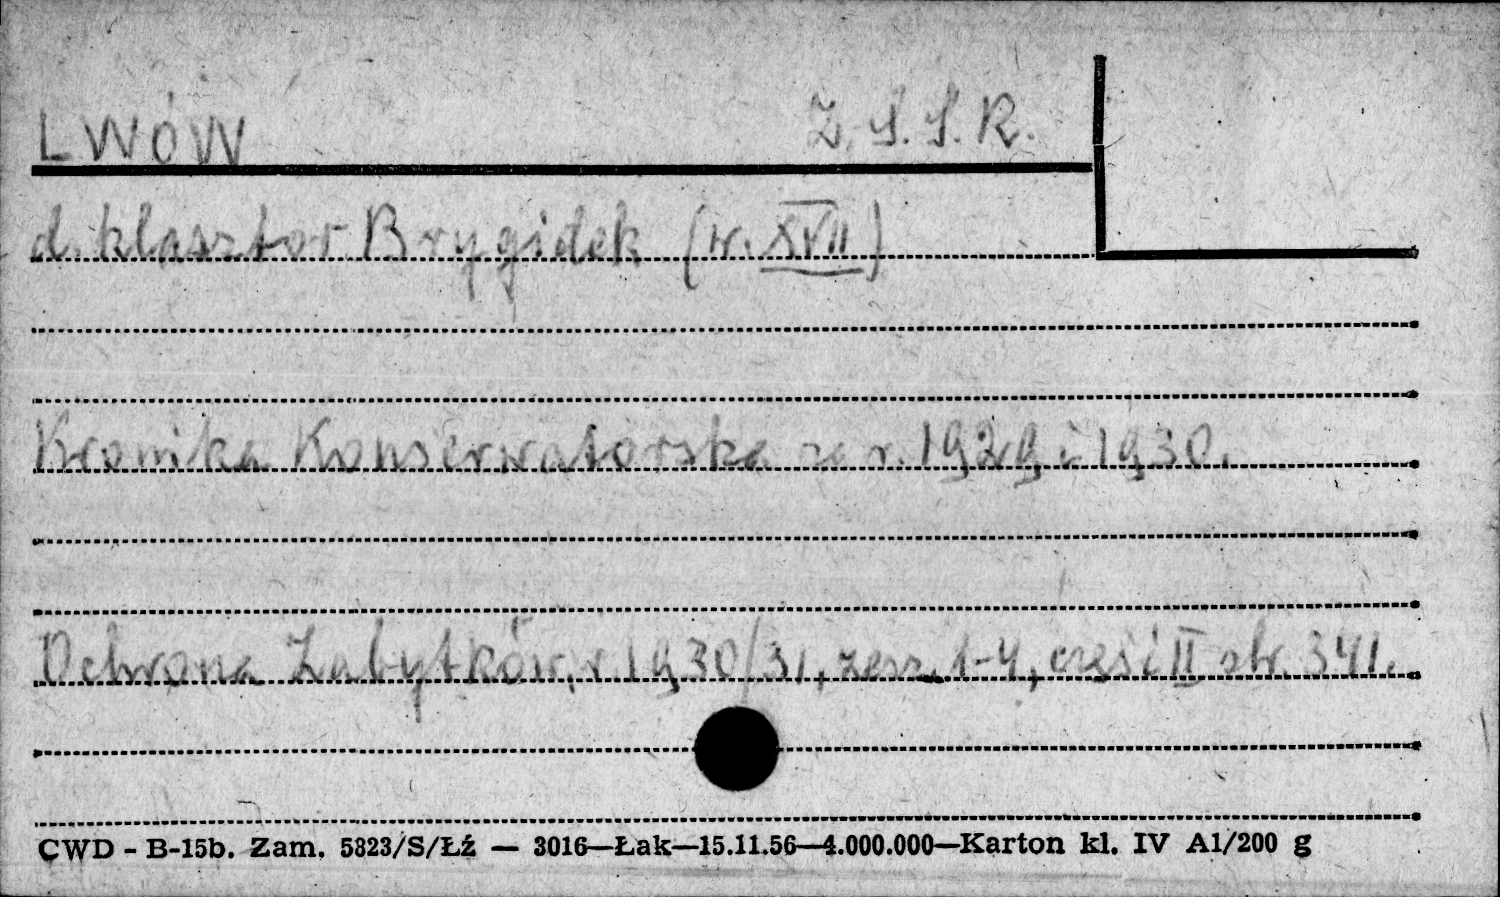 LWÓW Z.S.S.R.
d. klasztor Brygidek (w. XVII)
Kronika Konserwatorska za r. 1929 i 1930.
Ochrona Zabytków, r. 1930/31, zesz. 1-4, część II str. 341.
CWD - B-15b. Zam. 5823/S/Łź — 3016—Łak—15.11.56—4.000.000—Karton kl. IV A1/200 g